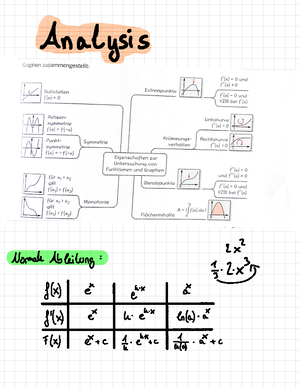 Analysis
Graphen zusammengestellt:
Nullstellen
f(x) = 0
Achsen-
symmetrie
f(x) = f(-x)
Punkt-
symmetrie
f(x) = -f(-x)
Symmetrie
Für x₁ < x₂
gilt
f(x₁) < f(x₂)
Für x₁ < x₂
gilt
f(x₁) > f(x₂)
Monotonie
Eigenschaften zur
Untersuchung von
Funktionen und Graphen
Extrempunkte
f'(x) = 0 und
f''(x) ≠ 0
f'(x) = 0 und
VZW bei f'(x)
Krümmungs-
verhalten
Linkskurve
Rechtskurve
Wendepunkte
f''(x) = 0
und
f''(x) = 0 und
VZW bei f''(x)
Flächeninhalte
Normale Ableitung:
2x²
1/3 · 2 · x³
f(x) eˣ e^(k·x) aˣ
f'(x) eˣ k · e^(k·x) ln(a) · aˣ
F(x) eˣ + c 1/k · e^(k·x) + c 1/ln(a) · aˣ + c